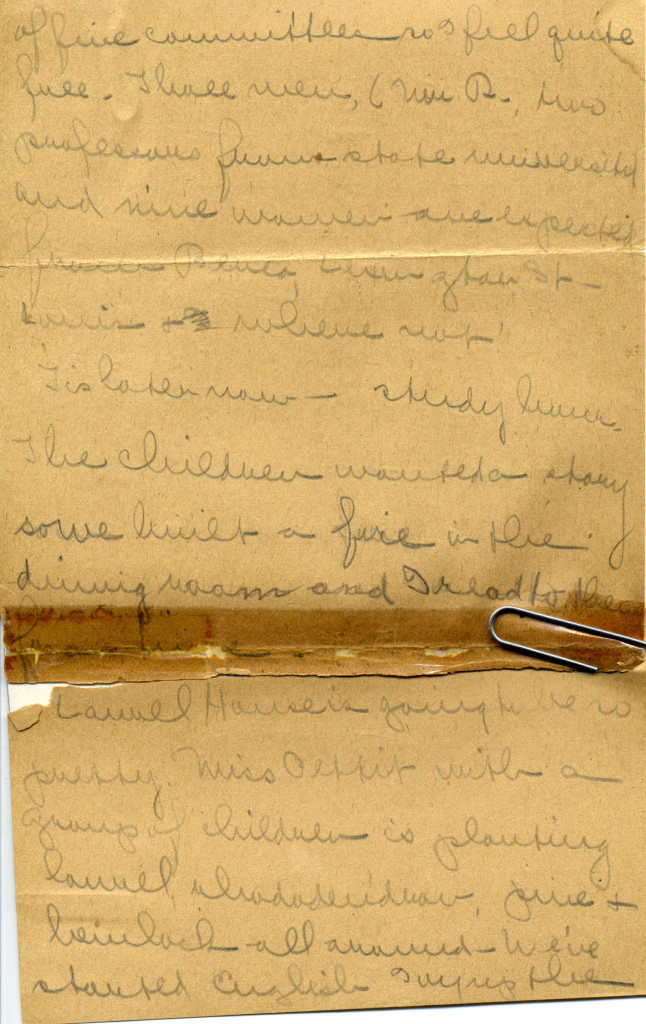 of five committees so I feel quite
free. Three men, (Mr. B., two
professors from state university
and nine women are expected
from Berea, Lexington St-
Louis + where not!
'Tis later now - study hour.
The children wanted a story
so we built a fire in the
dining room and I read to them
from
Laurel House is going to be so
pretty. Miss Pettit with a
group of children is planting
laurel, rhododendron, pine +
hemlock all around - We've
started English Ivy up the